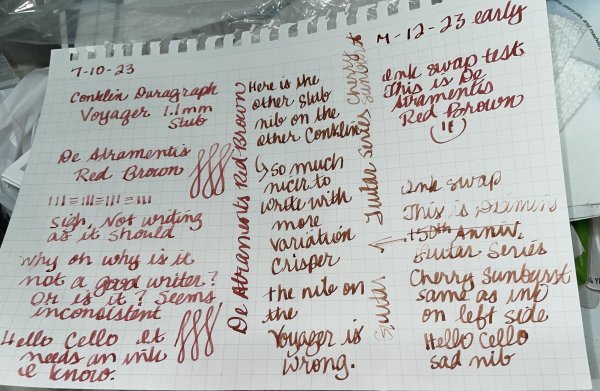 7-10-23
Conklin Duragraph
Voyager 1.1mm
Stub
De Atramentis
Red Brown
Sigh, Not writing
as it should
Why oh why is it
not a good writer?
Or is it? Seems
inconsistent
Hello Cello let
needs an ink
I know.
De Atraments Red-Brown
Here is the
other stub
nib on the
other Conklin
so much
nicer to
write with
more
variation
Crisper
the nite on
the
Voyager is
Wrong.
Guitar Series Cherry
Sunburst
Guitar
7-12-23 early
Ink swap test.
This is De
Atramentis
Red Brown
Ink swap
This is Diamine
150th Anniv.
Guitar Series
Cherry Sunburst
same as ink
on left side
Hello Cello
sad nib